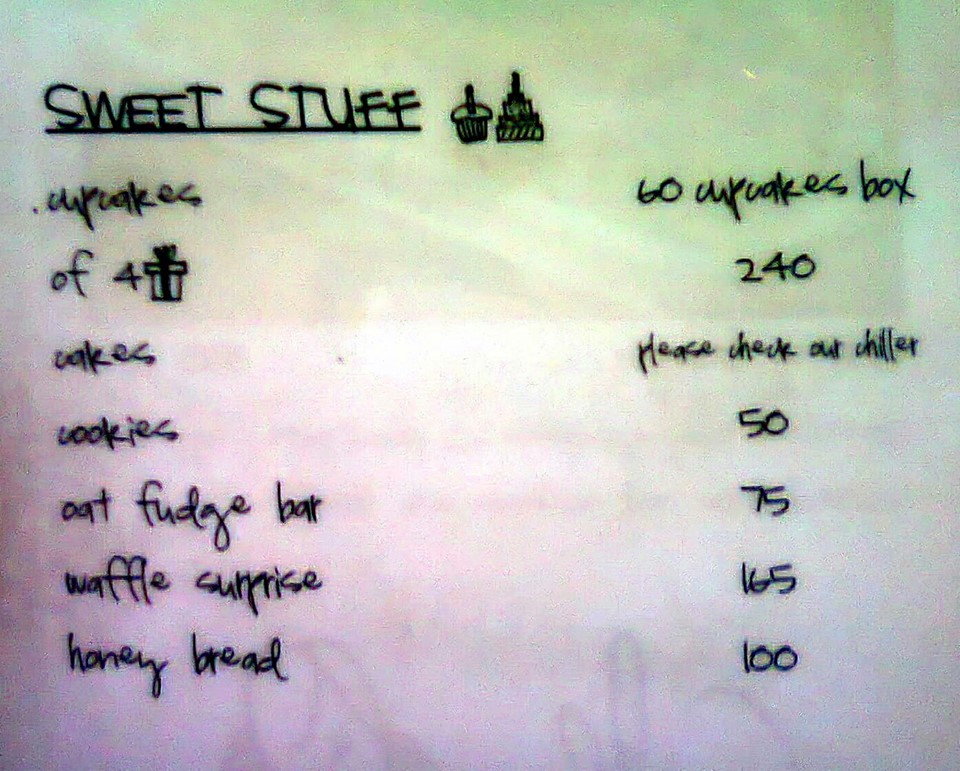 SWEET STUFF
.cupcakes 60 cupcakes box
of 4 240
cakes please check our chiller
cookies 50
oat fudge bar 75
waffle surprise 165
honey bread 100